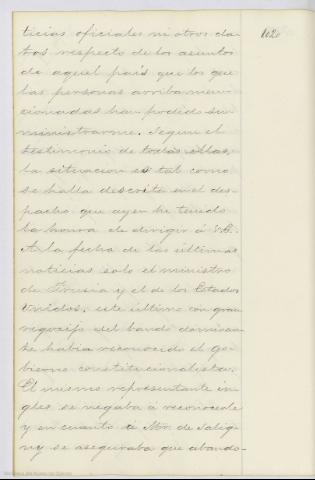 ticias oficiales ni otros da-
tos respecto de los asuntos
de aquel país que los que
las personas arriba men-
cionadas han podido su-
ministrarme. Segun el
testimonio de todas ellas,
la situacion es tal como
se halla descrita en el des-
pacho que ayer he tenido
la honra de dirigir á V.E.
A la fecha de las últimas
noticias solo el ministro
de Prusia y el de los Estados
Unidos, este último con gran
regocijo del bando dominan-
te habia reconocido el go-
bierno constitucionalista.
El mismo representante in-
gles se negaba á reconocerle
y en cuanto á Mr. de Salig-
ny se aseguraba que abando-